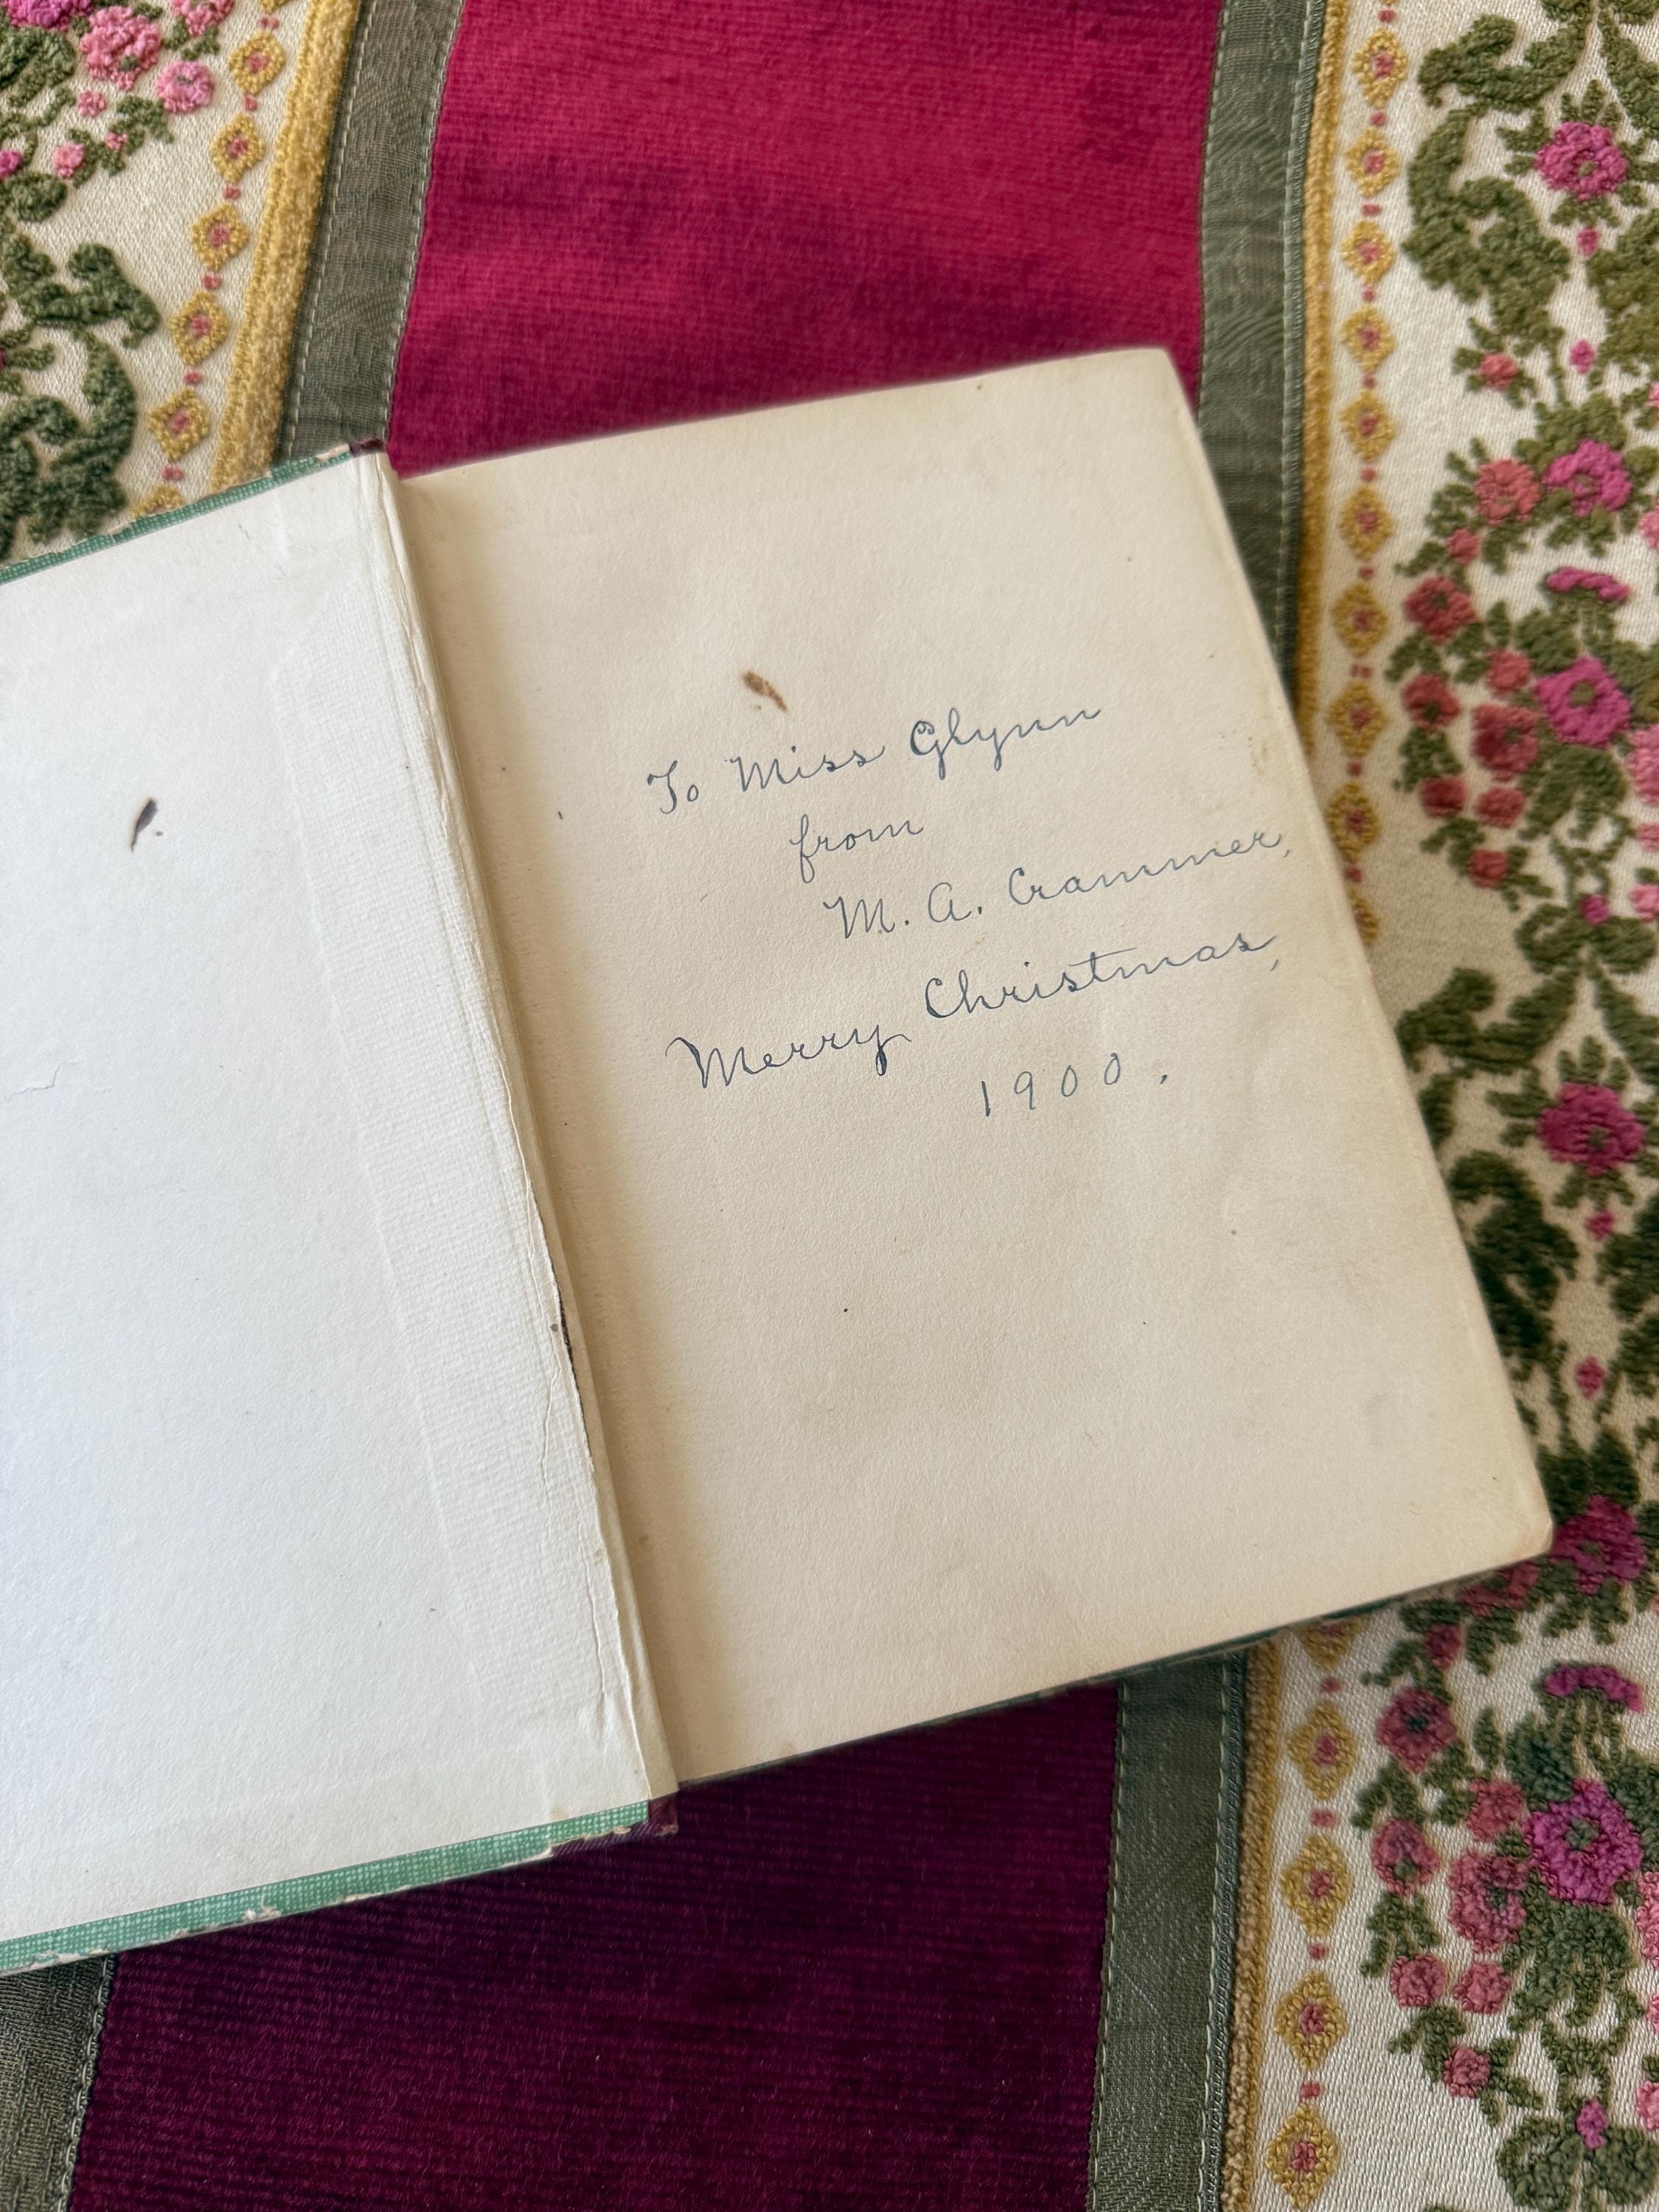 To Miss Glynn
from
M. A. Crammer,
Merry Christmas,
1900.